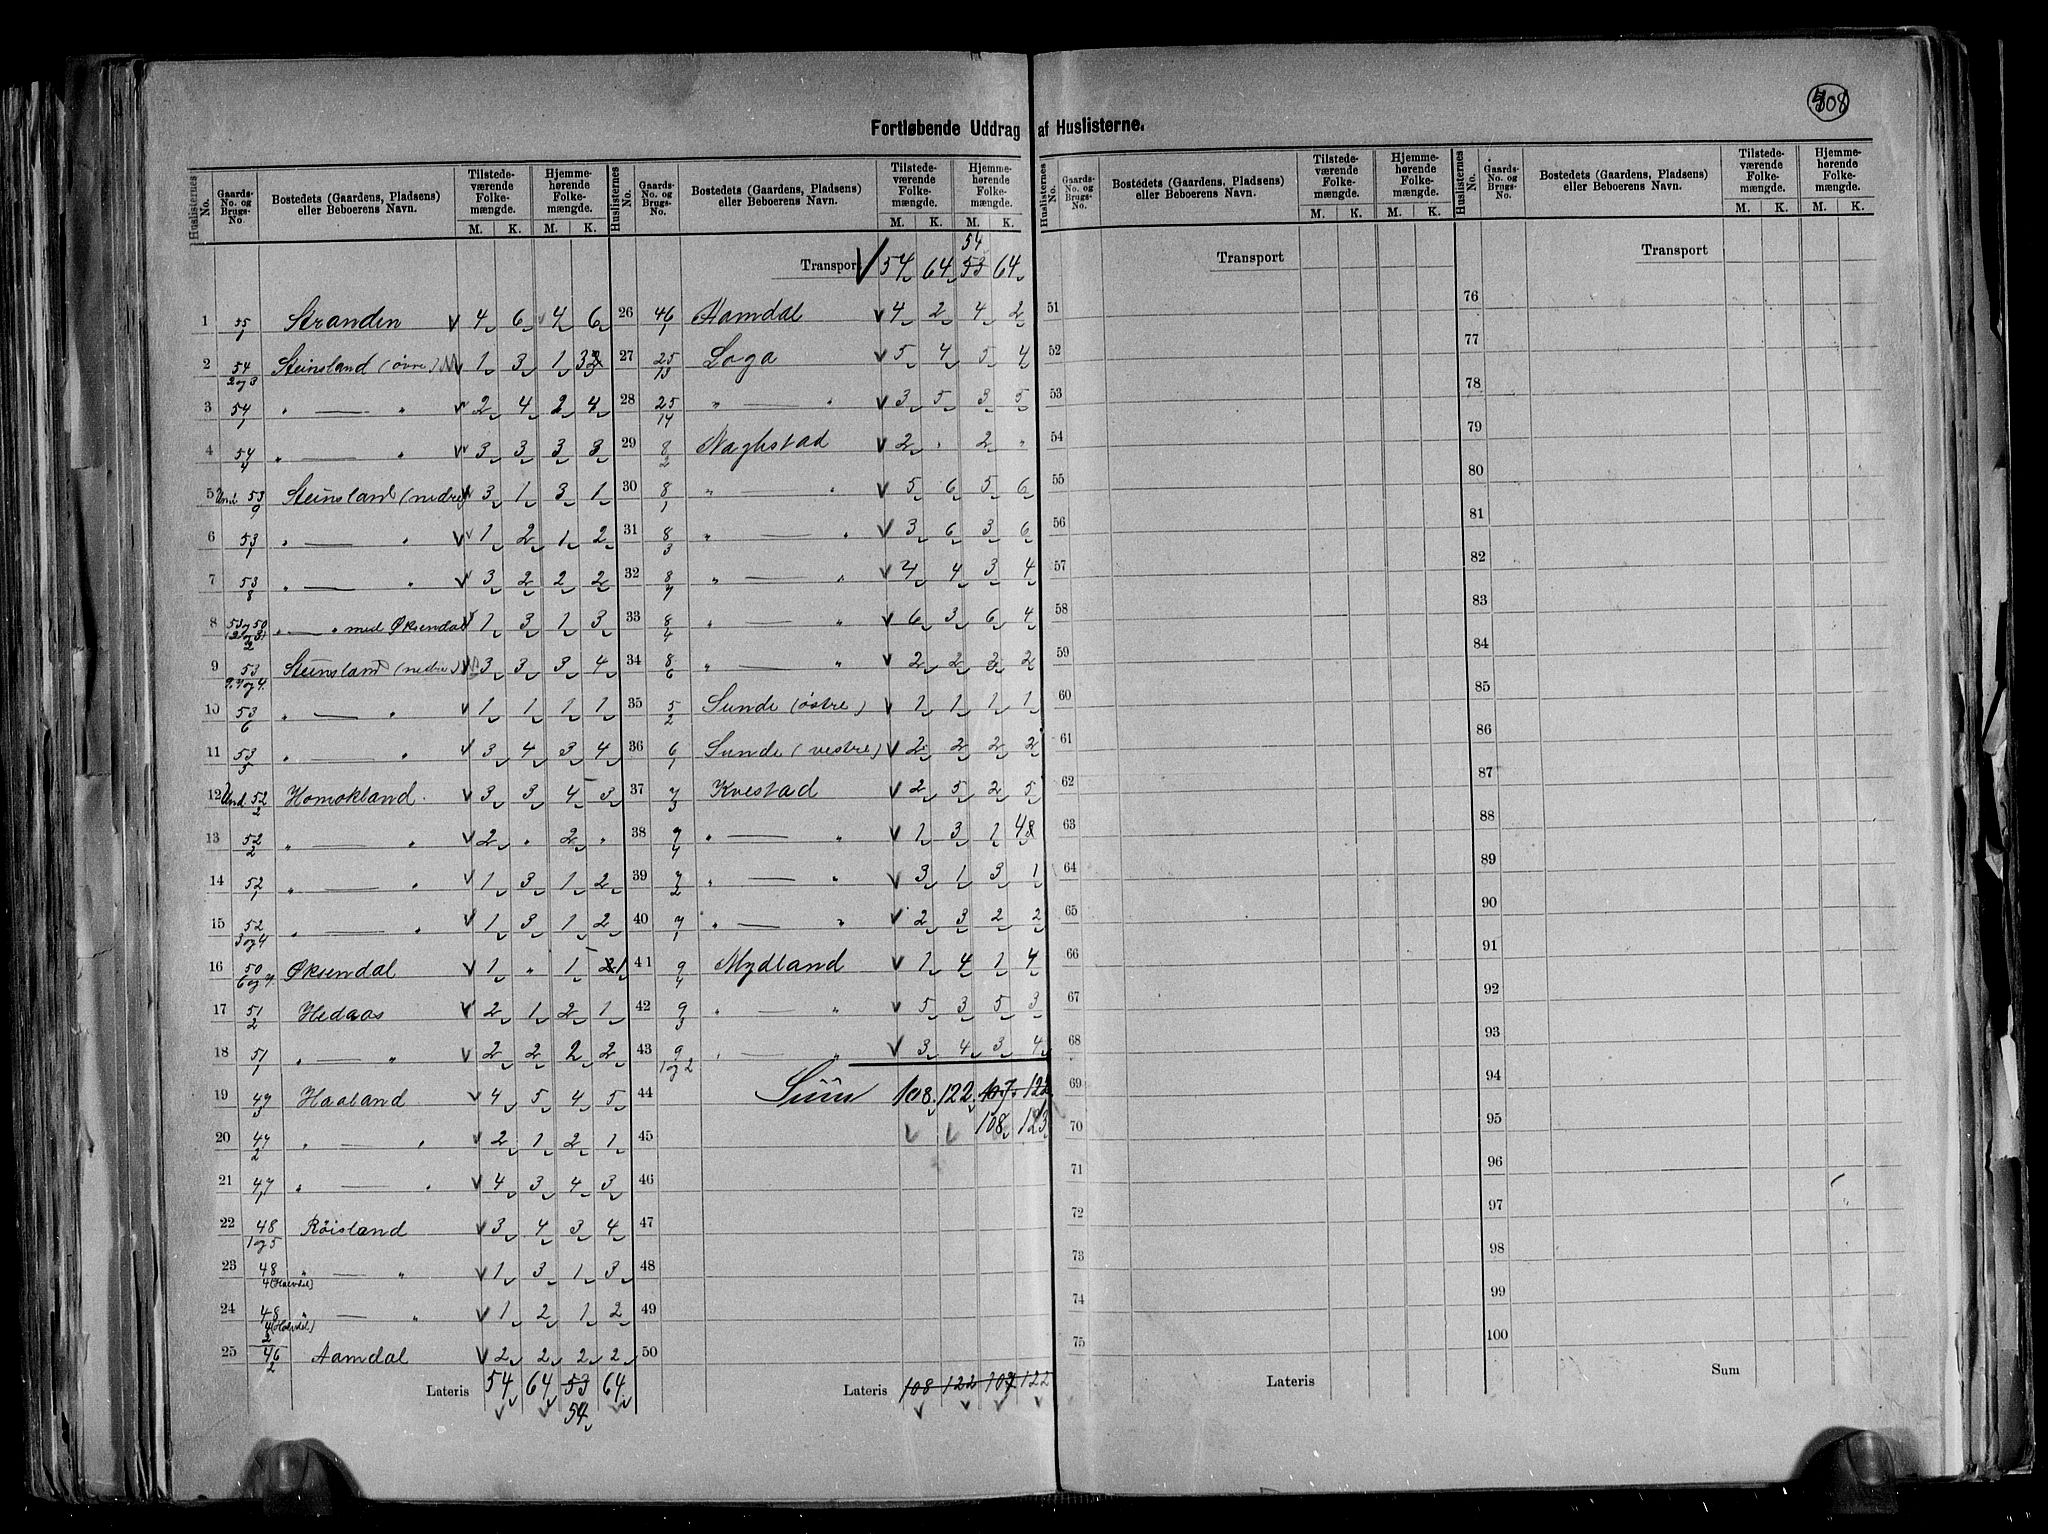 308
Fortløbende Uddrag af Huslisterne.
Huslisternes No. | Gaards-No. og Brugs-No. | Bostedets (Gaardens, Pladsens) eller Beboerens Navn. | Tilstedeværende Folkemængde. M. K. | Hjemmehørende Folkemængde. M. K.
1 55/1 Stranden 4 6 4 6
2 54/2og3 Steinsland (øvre) 1 3 1 3
3 54/1 " — " 2 4 2 4
4 54/4 " — " 3 3 3 3
5 Und. 53/9 Steinsland (nedre) 3 1 3 1
6 53/1 " — " 1 2 1 2
7 53/8 " — " 3 2 2 2
8 53 og 50 " — " med Øksendal 1 3 1 3
9 53 Steinsland (nedre) 3 3 3 4
10 53/6 " — " 1 1 1 1
11 53/5 " " 3 4 3 4
12 Und. 52/2 Homokland. 3 3 4 3
13 52/2 " — " 2 " 2 "
14 52/1 " — " 1 3 1 2
15 52/3og4 " — " 1 3 1 2
16 50 Øksendal 1 " 1 1
17 51/2 Hedaas 2 1 2 1
18 51/1 " — " 2 2 2 2
19 47/3 Haaland 4 5 4 5
20 47/2 " — " 2 1 2 1
21 47/1 " — " 4 3 4 3
22 48/1og5 Röisland 3 4 3 4
23 48/4 (Halvdel) " — " 1 3 1 3
24 48/4 (Halvdel) " — " 1 2 1 2
25 46/2 Aamdal 2 2 2 2
Lateris 54 64 53 64
54
54
Transport 54 64 53 64
26 46/1 Aamdal 4 2 4 2
27 25/13 Loga 5 4 5 4
28 25/14 " — " 3 5 3 5
29 8/2 Naghstad 2 " 2 "
30 8/1 " " 5 6 5 6
31 8/3 " — " 3 6 3 6
32 8/7 " — " 4 4 3 4
33 8/4 " — " 6 3 6 4
34 8/6 " — " 2 2 2 2
35 5/2 Sunde (østre) 1 1 1 1
36 6/1 Sunde (vestre) 2 2 2 2
37 7/3 Kvestad 2 5 2 5
38 7/4 " — " 1 3 1 4
39 7/2 " — " 3 1 3 1
40 7/1 " — " 2 3 2 2
41 9/4 Mydland 1 4 1 4
42 9/3 " — " 5 3 5 3
43 9/1og2 " — " 3 4 3 4
44 Sum 108 122 107 122
108 123
45
46
47
48
49
50
Lateris 108 122 107 122
Huslisternes No. | Gaards-No. og Brugs-No. | Bostedets (Gaardens, Pladsens) eller Beboerens Navn. | Tilstedeværende Folkemængde. M. K. | Hjemmehørende Folkemængde. M. K.
Transport
51
52
53
54
55
56
57
58
59
60
61
62
63
64
65
66
67
68
69
70
71
72
73
74
75
Lateris
Transport
76
77
78
79
80
81
82
83
84
85
86
87
88
89
90
91
92
93
94
95
96
97
98
99
100
Sum